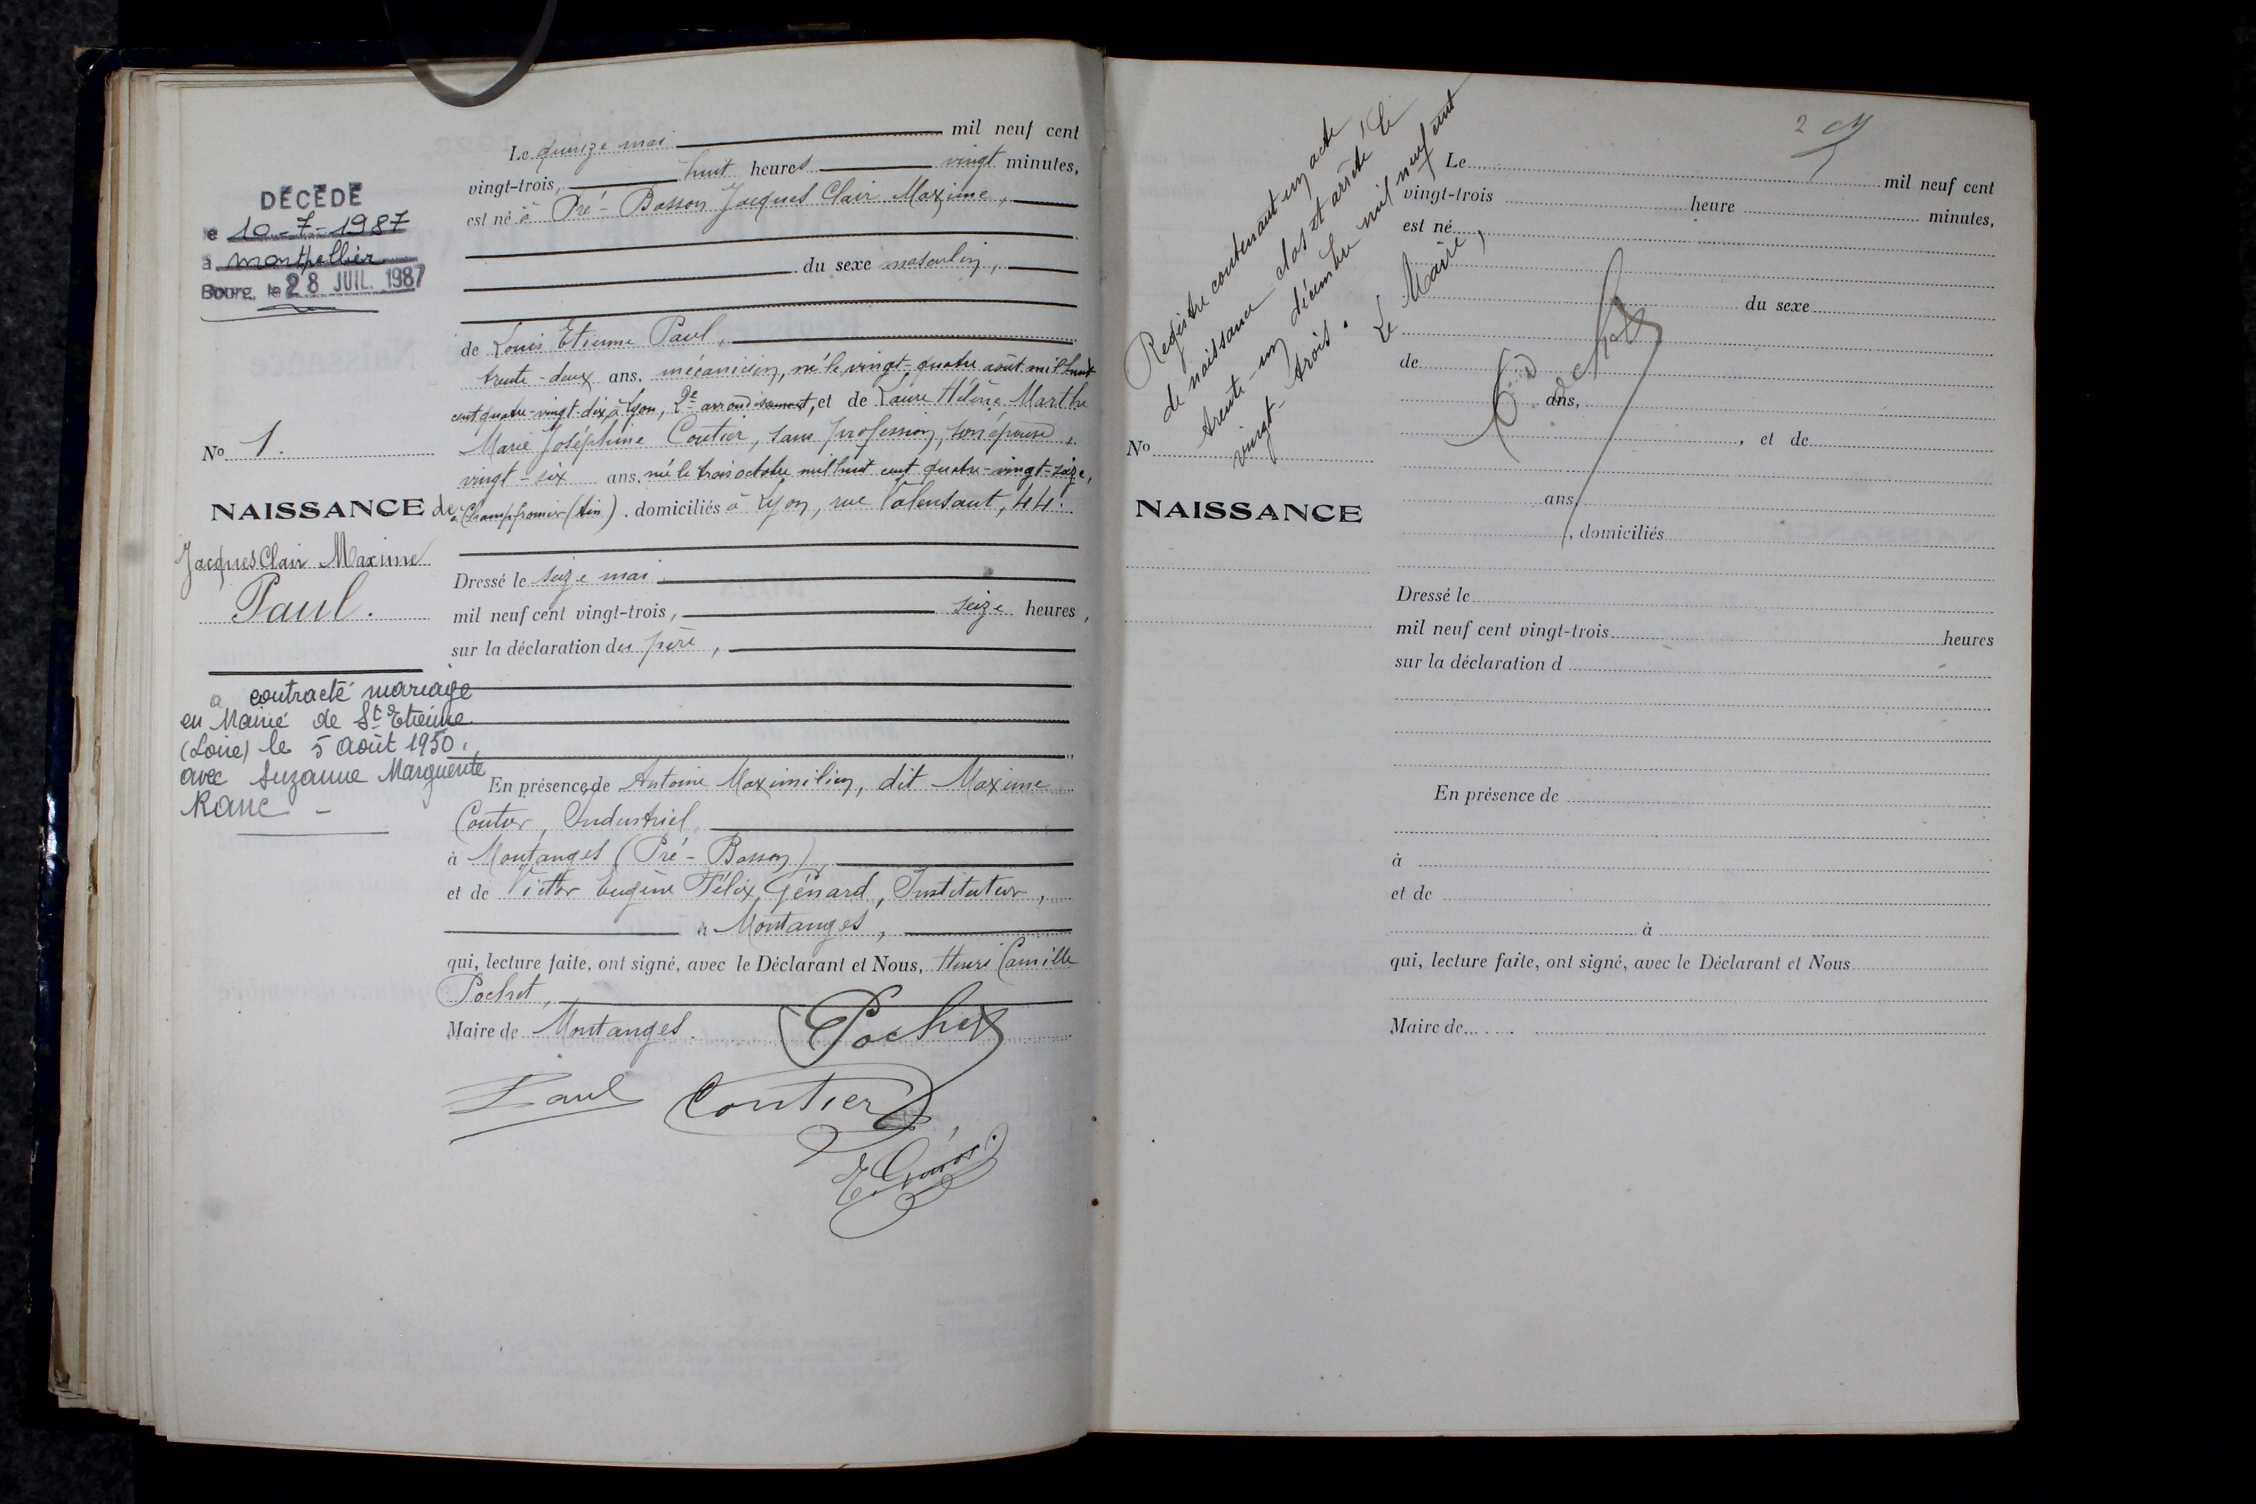 DÉCÉDÉ
le 10-7-1987
à Montpellier
Bourg, le 28 JUIL. 1987
No 1.
NAISSANCE de
Jacques Clair Maxime
Paul.
a contracté mariage
en Mairie de St Etienne
(Loire) le 5 Août 1950.
avec Suzanne Marguerite
Ranc -
Le quinze mai mil neuf cent
vingt-trois, huit heures vingt minutes,
est né à Pré-Basson Jacques Clair Maxime,
du sexe masculin,
de Louis Etienne Paul,
trente-deux ans, mécanicien, né le vingt-quatre août mil huit
cent quatre-vingt-dix à Lyon, 2e arrondissement, et de Laure Hélène Marthe
Marie Joséphine Coutier, sans profession, son épouse,
vingt-six ans, née le trois octobre mil huit cent quatre-vingt-seize,
à Champfromier (Ain). domiciliés à Lyon, rue Valensaut, 44.
Dressé le seize mai
mil neuf cent vingt-trois, seize heures,
sur la déclaration du père,
En présence de Antoine Maximilien, dit Maxime
Coutier, Industriel,
à Montanges (Pré-Basson),
et de Victor Eugène Félix Génard, Instituteur,
à Montanges,
qui, lecture faite, ont signé, avec le Déclarant et Nous, Henri Camille
Pochet,
Maire de Montanges.
Pochet
Paul Coutier
Registre contenant un acte
de naissance clos et arrêté le
trente-un décembre mil neuf cent
vingt-trois.
Le Maire,
Pochet
2
No
NAISSANCE
Le mil neuf cent
vingt-trois heure minutes,
est né
du sexe
de
ans,
, et de
ans,
, domiciliés
Dressé le
mil neuf cent vingt-trois heures
sur la déclaration d
En présence de
à
et de
à
qui, lecture faite, ont signé, avec le Déclarant et Nous
Maire de